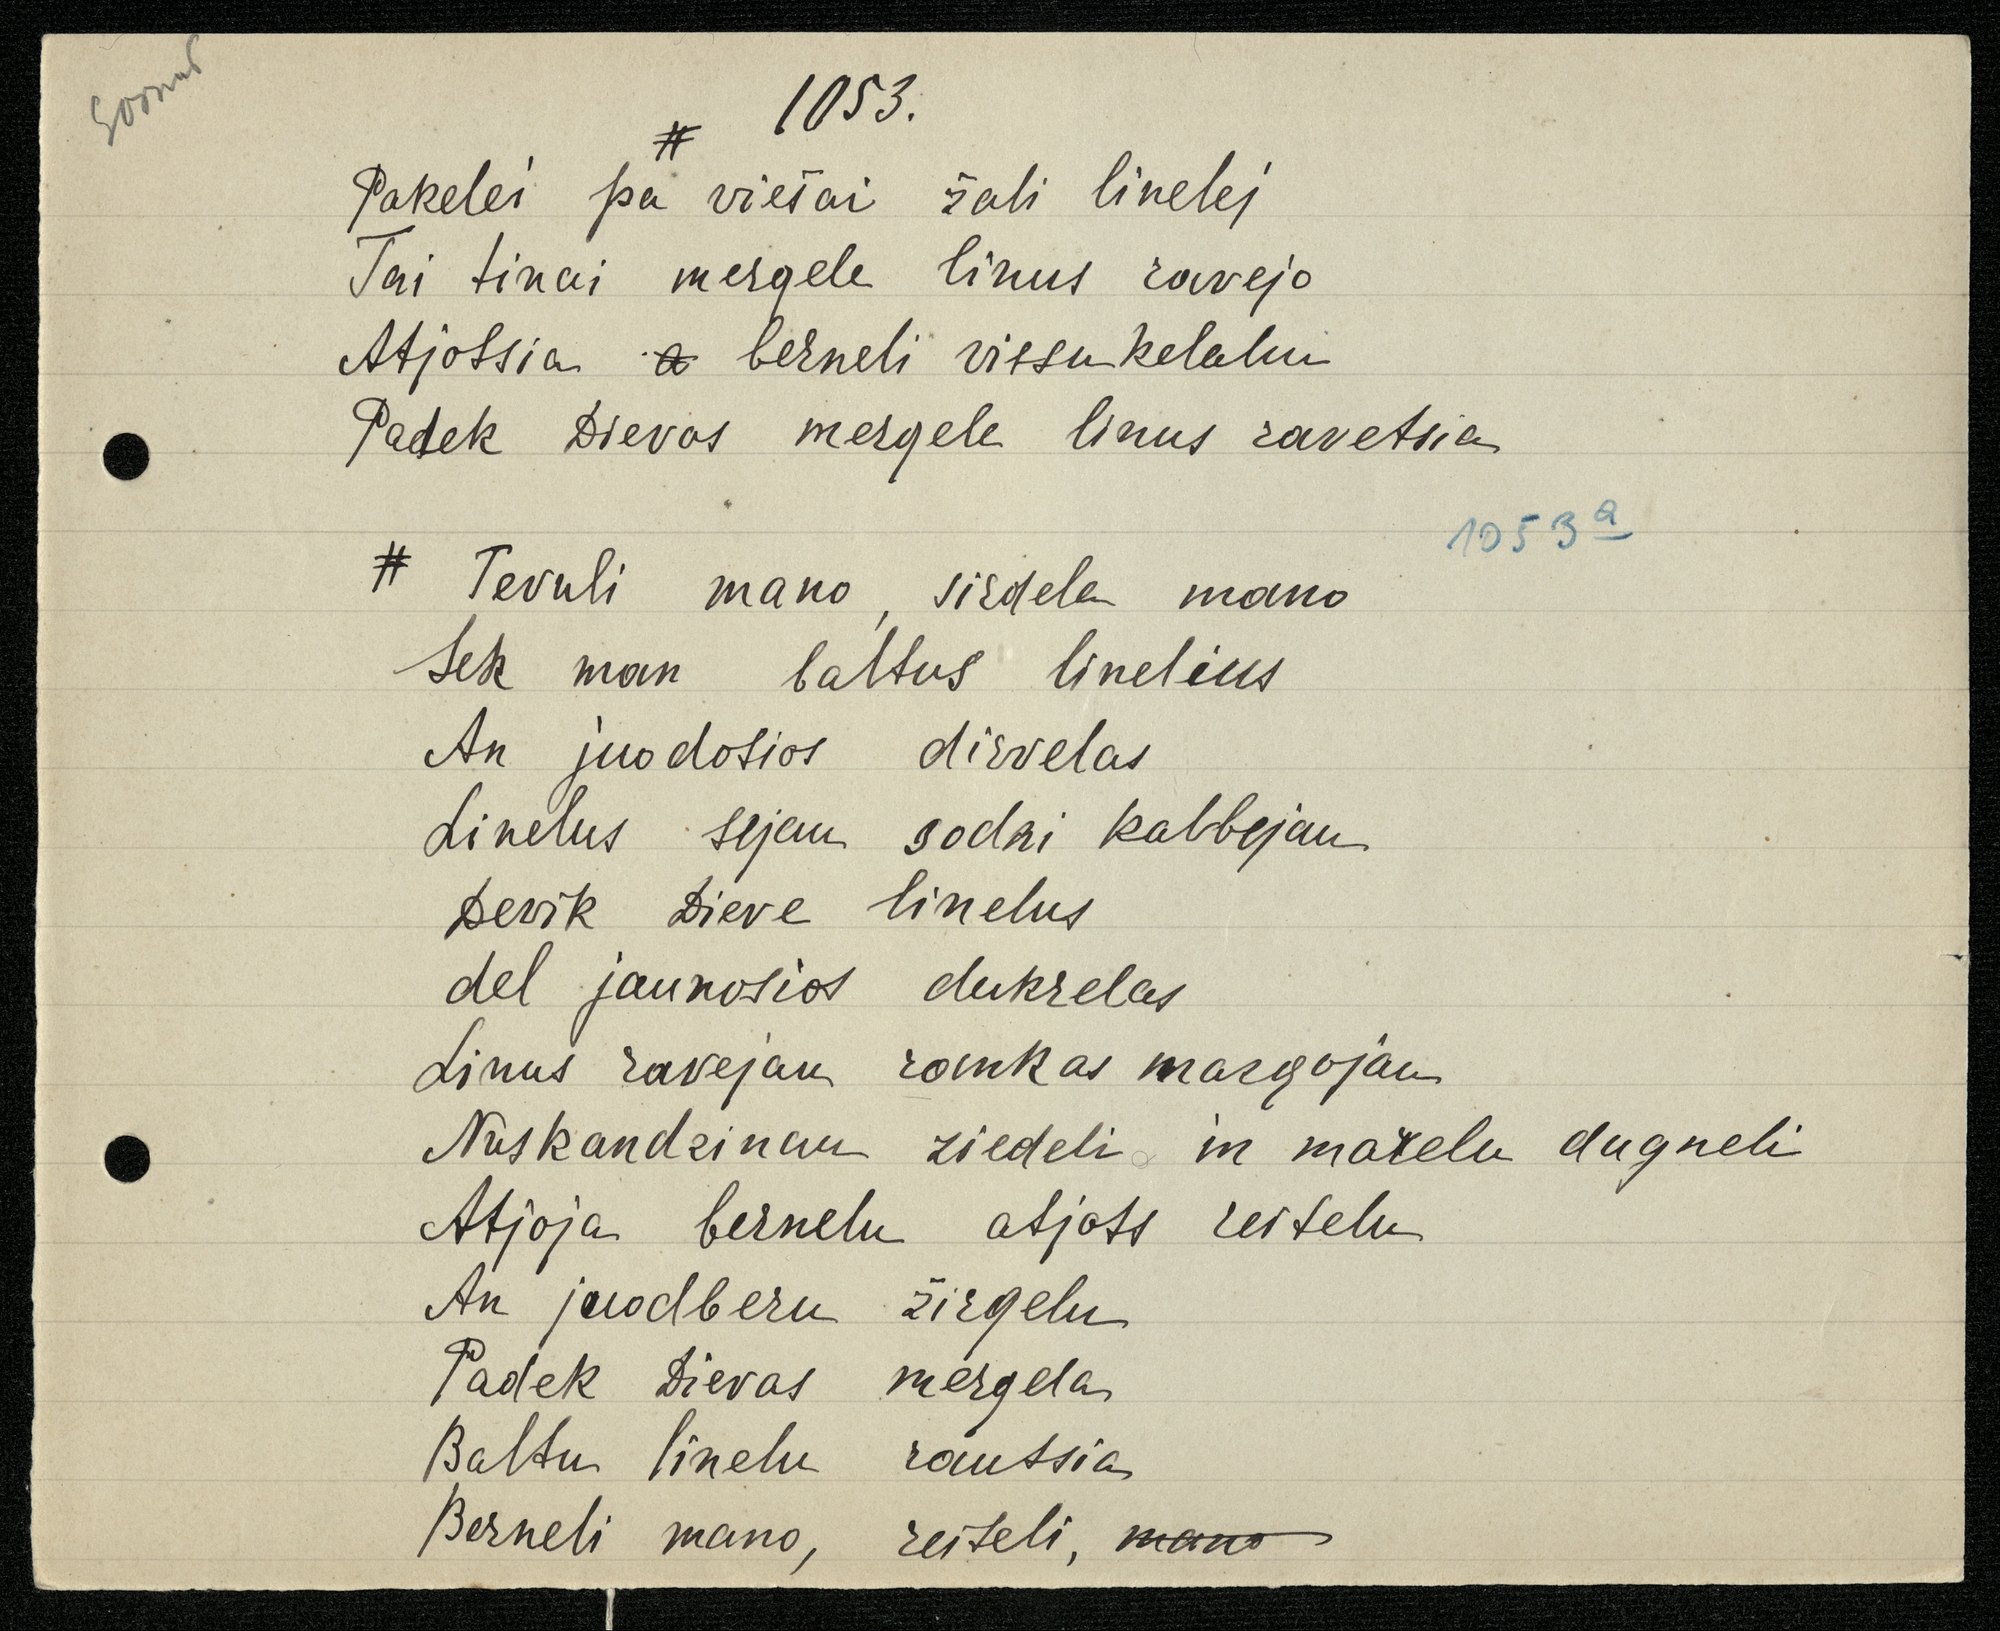 1053.
#
Pakelei pa viešai žali linelej
Tai tinai mergele linus ravejo
Atjotsia a berneli vissu kelalu
Padek Dievas mergele linus ravetsia
1053 a
# Tevuli mano, sirdele mano
Sek man baltus linelius
An juodosios dirvelas
Linelus sejau sodzi kalbejau
Devik Dieve linelus
del jaunosios dukrelas
Linus ravejau rankas margojau
Nuskandzinau ziedeli in marelu dugneli
Atjoja bernelu atjots reitelu
An juodberu žirgelu
Padek Dievas mergela
Baltu linelu rautsia
Berneli mano, reiteli, mano